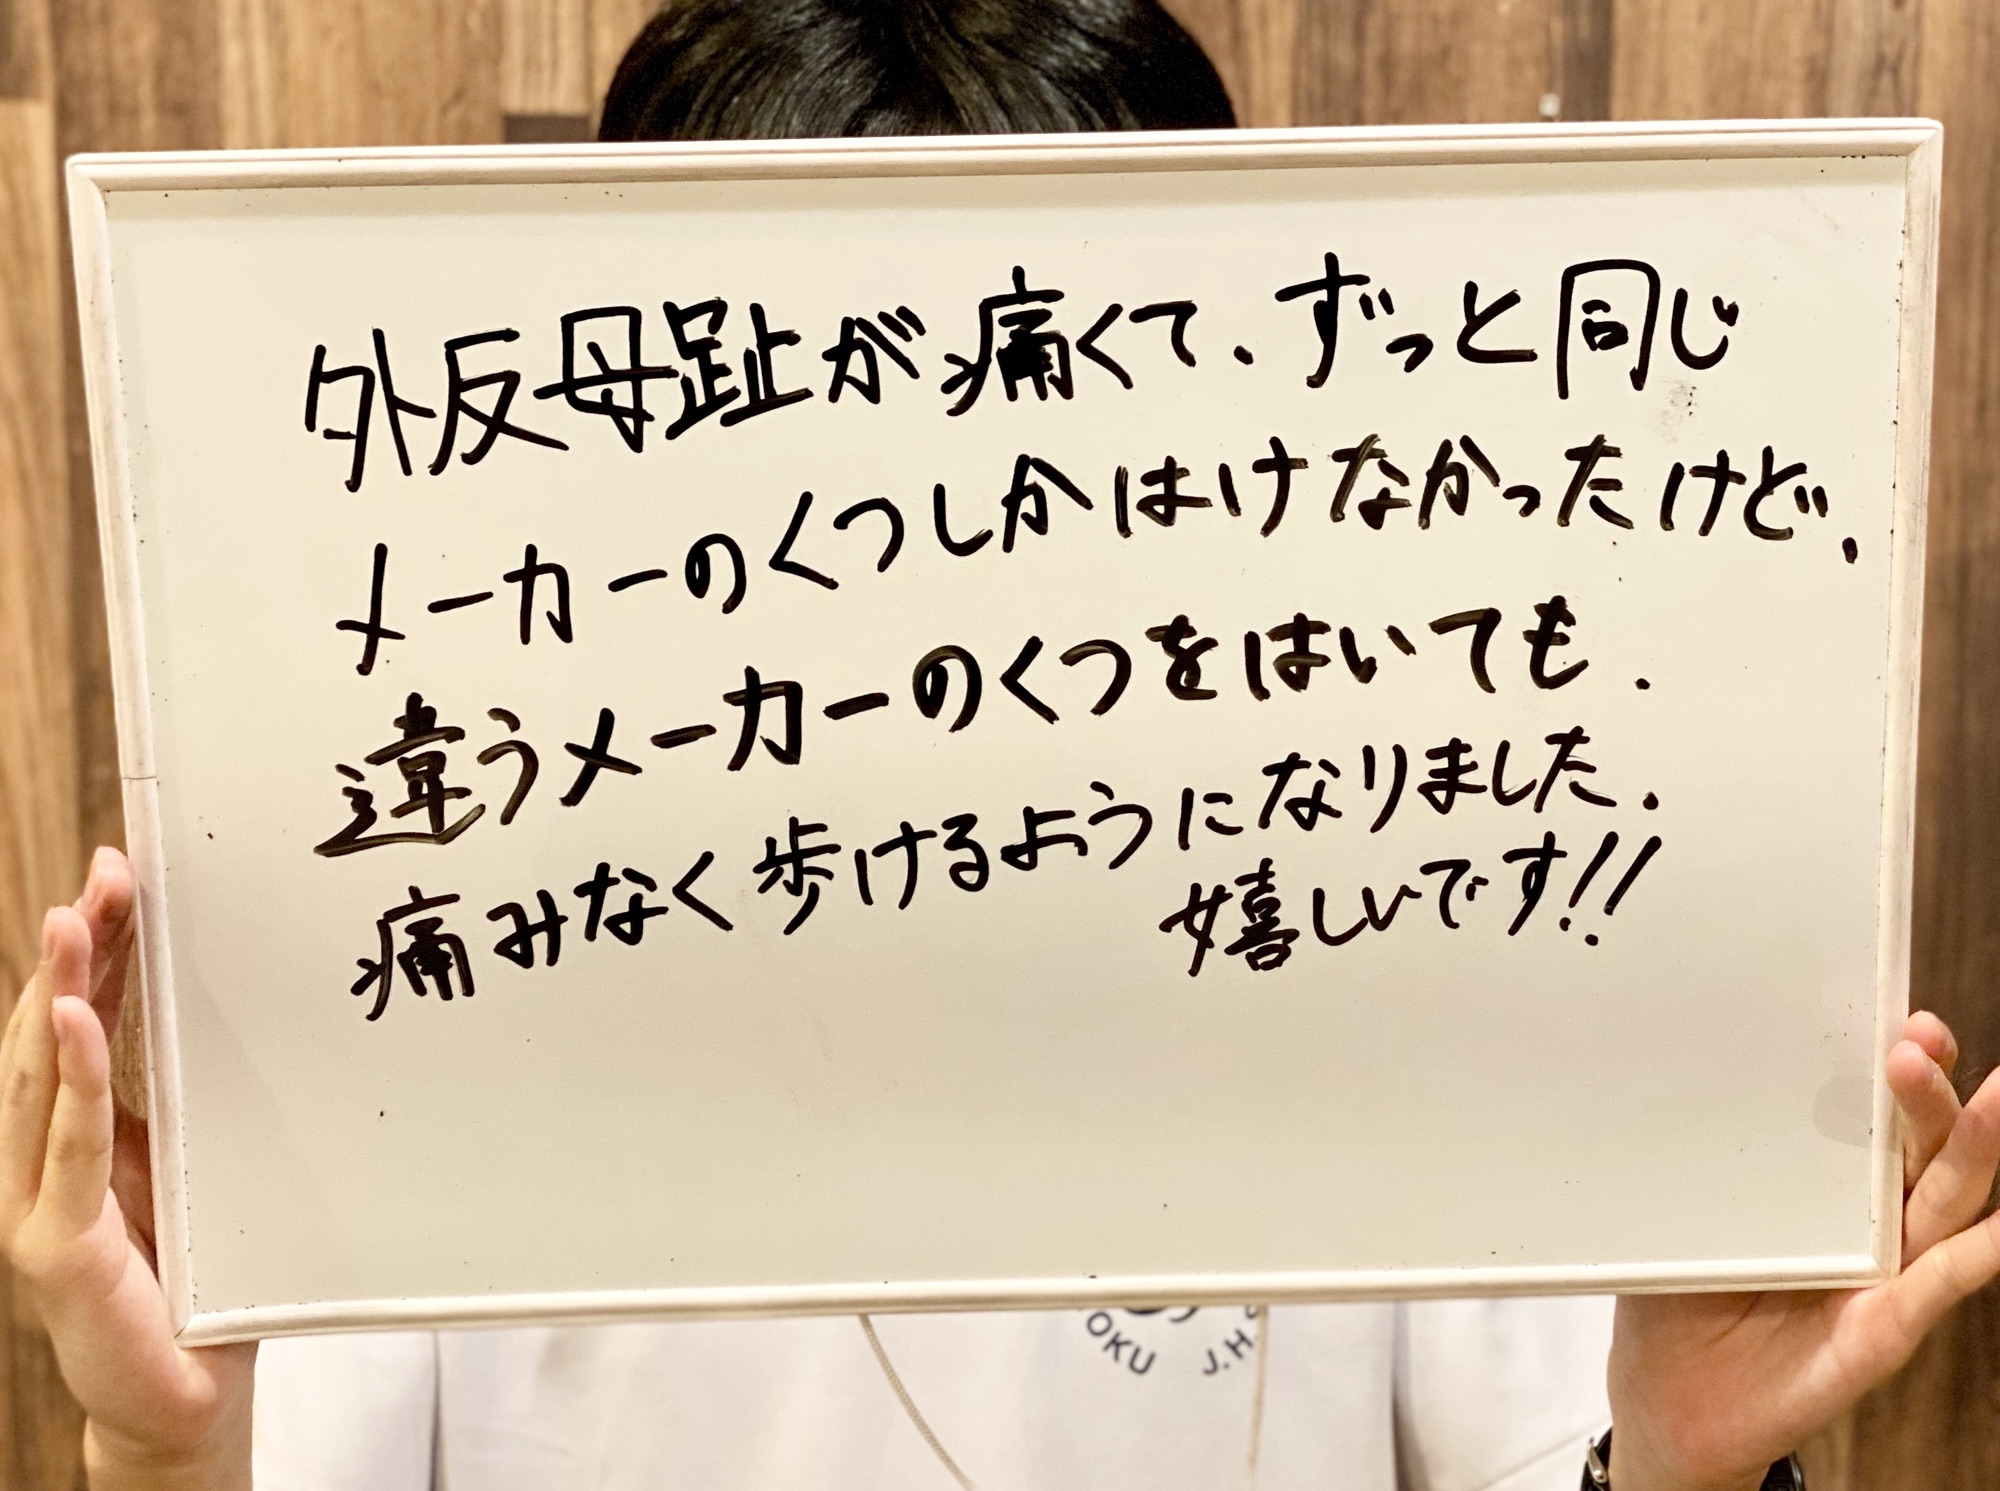 外反母趾が痛くて、ずっと同じ
メーカーのくつしかはけなかったけど、
違うメーカーのくつをはいても、
痛みなく歩けるようになりました.
嬉しいです!!
OKU J.H.